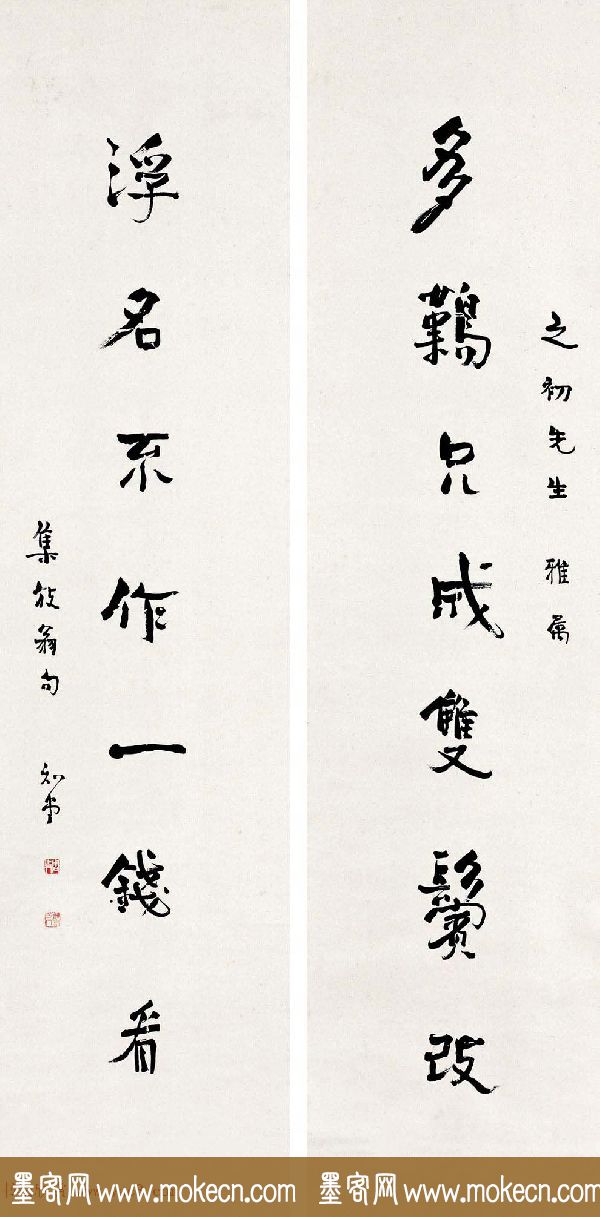 之初先生 雅屬
多難只成雙鬢改
浮名不作一錢看
集放翁句 知堂
墨客网 www.mokecn.com 墨客网 www.mokecn.com